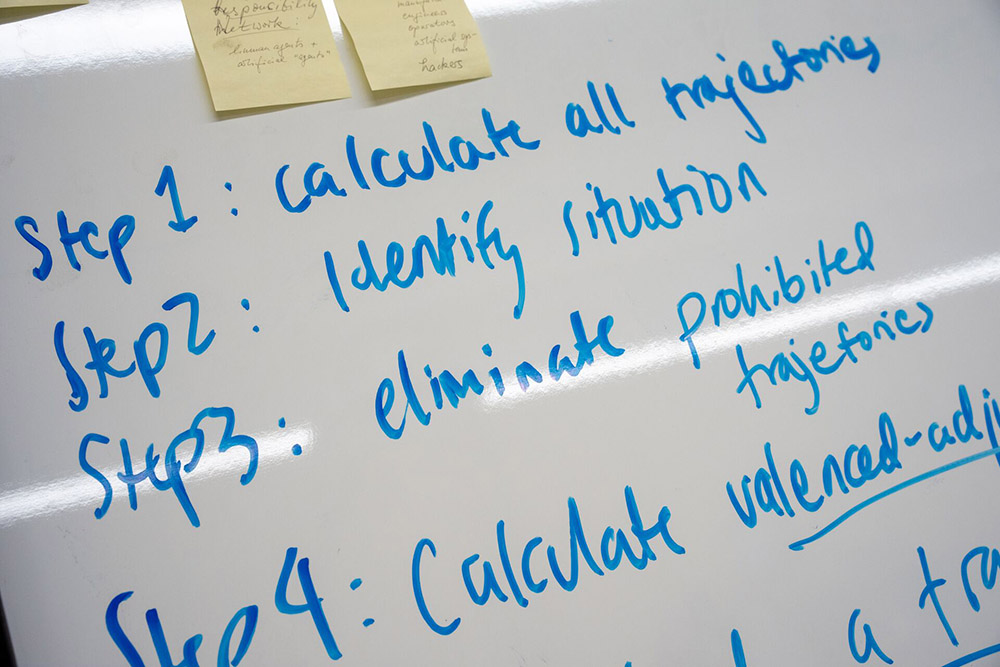 Responsibility
Network:
human agents +
artificial "agents"
engineers
operators
hackers
Step 1: calculate all trajectories
Step 2: Identify situation
Step 3: eliminate prohibited
trajetories
Step 4: Calculate valenced-adj
a tra